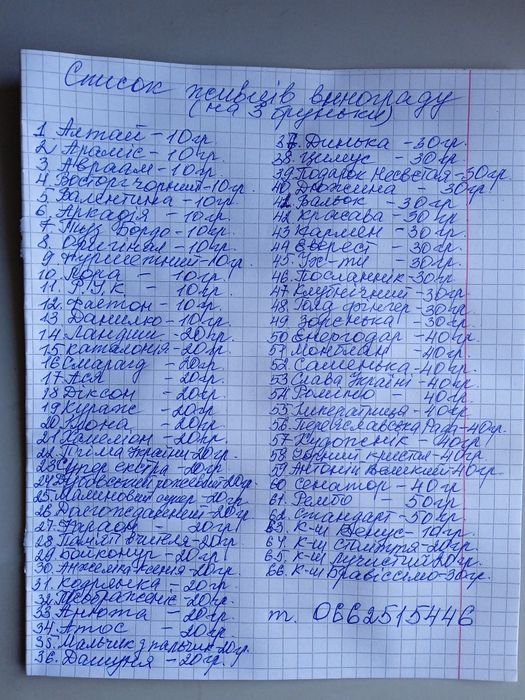 Список живців винограду
(на 3 бруньки)
1. Алтай - 10гр.
2. Араміс - 10гр.
3. Авраам - 10гр.
4. Восторг чорний - 10гр.
5. Валентина - 10гр.
6. Аркадія - 10гр.
7. Туз Бордо - 10гр.
8. Оригінал - 10гр.
9. Нурмитний - 10гр.
10. Лора - 10гр.
11. Рік - 10гр.
12. Фаетон - 10гр.
13. Данилко - 10гр.
14. Ландиш - 20гр.
15. Каталонія - 20гр.
16. Смарагд - 20гр.
17. Ася - 20гр.
18. Діксон - 20гр.
19. Кураж - 20гр.
20. Ілона - 20гр.
21. Хамеліон - 20гр.
22. Перлма України - 20гр.
23. Супер екстра - 20гр.
24. Дубовский рожевий - 20гр.
25. Малиновий супер - 20гр.
26. Долгожеданий - 20гр.
27. Фараон - 20гр.
28. Памяті вчителя - 20гр.
29. Байконур - 20гр.
30. Анжеліка - 20гр.
31. Кодрянка - 20гр.
32. Преображеніє - 20гр.
33. Анюта - 20гр.
34. Атос - 20гр.
35. Мальчик з пальчик - 20гр.
36. Дашуня - 20гр.
37. Динька - 30гр.
38. Цимус - 30гр.
39. Подарок Несветая - 30гр.
40. Дружина - 30гр.
41. Вальок - 30гр.
42. Красава - 30гр.
43. Кармен - 30гр.
44. Еверест - 30гр.
45. Ух-ти - 30гр.
46. Посланник - 30гр.
47. Клубнічний - 30гр.
48. Голд фінгер - 30гр.
49. Зоренька - 30гр.
50. Енергодар - 40гр.
51. Монблан - 40гр.
52. Сашенька - 40гр.
53. Слава Україні - 40гр.
54. Ромітно - 40гр.
55. - 40гр.
56. Переяславська Рада - 40гр.
57. Художнік - 40гр.
58. кристал - 40гр.
59. Антоній великий - 40гр.
60. Сенатор - 40гр.
61. Рембо - 50гр.
62. Стандарт - 50гр.
63. К-ш Венус - 10гр.
64. К-ш Століття - 20гр.
65. К-ш Лучистий - 20гр.
66. К-ш Бравіссімо - 30гр.
т. 0662515446